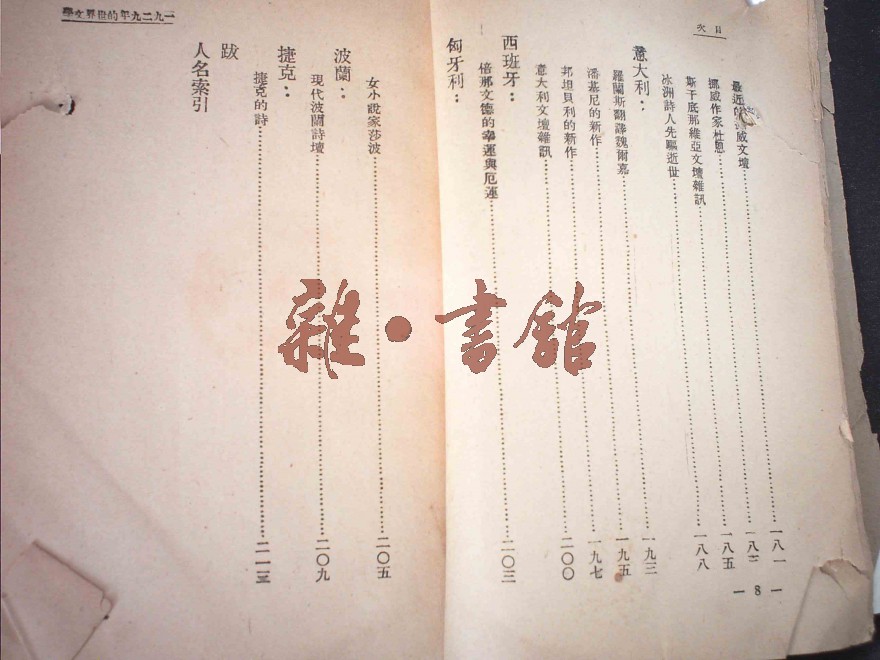 目次
最近 威文壇……一八一
挪威作家杜恩……一八三
斯干底那維亞文壇雜訊……一八五
冰洲詩人先驅逝世……一八八
意大利：
羅蘭斯翻譯魏爾嘉……一九三
潘基尼的新作……一九五
邦坦貝利的新作……一九七
意大利文壇雜訊……二〇〇
西班牙：
倍那文德的幸運與厄運……二〇三
匈牙利：
— 8 —
一九二九年的世界文學
女小說家莎波……二〇五
波蘭：
現代波蘭詩壇……二〇九
捷克：
捷克的詩……二一三
跋
人名索引
雜·書館